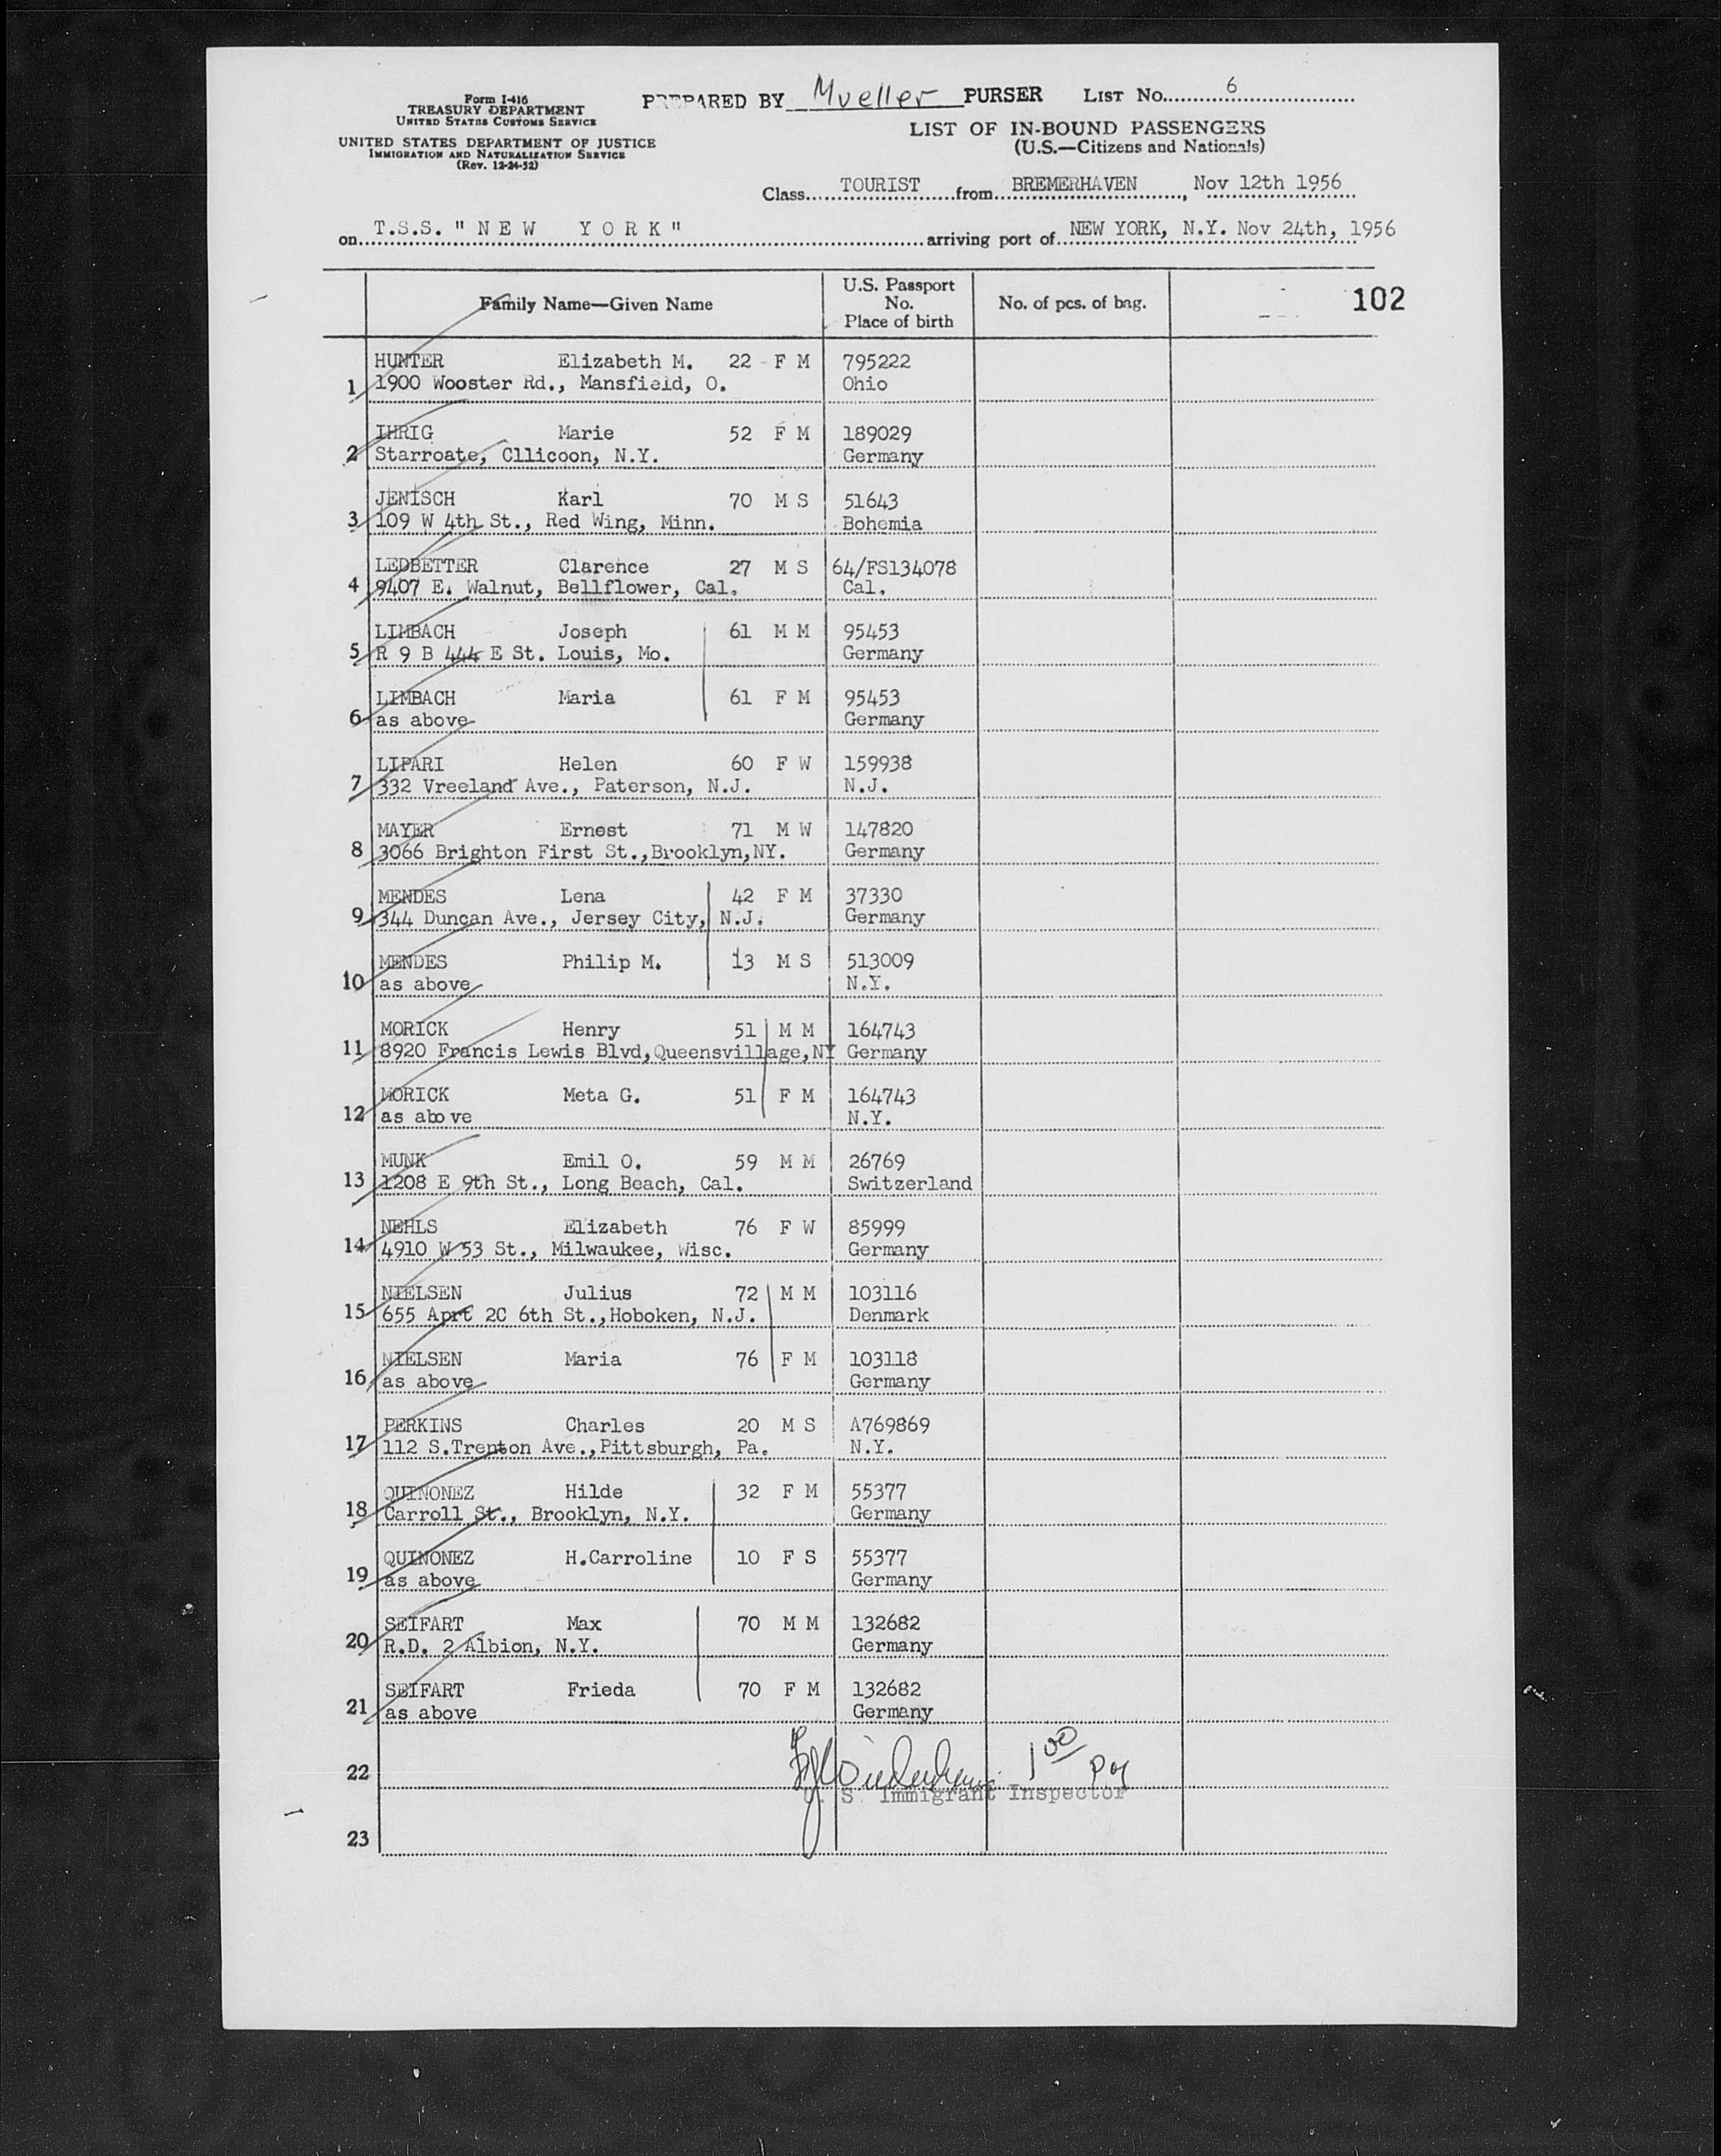 Form I-416
TREASURY DEPARTMENT
UNITED STATES CUSTOMS SERVICE
UNITED STATES DEPARTMENT OF JUSTICE
IMMIGRATION AND NATURALIZATION SERVICE
(Rev. 12-24-52)
PREPARED BY Mueller PURSER LIST No. 6
LIST OF IN-BOUND PASSENGERS
(U.S.—Citizens and Nationals)
Class TOURIST from BREMERHAVEN, Nov 12th 1956
on T.S.S. "NEW YORK" arriving port of NEW YORK, N.Y. Nov 24th, 1956
Family Name—Given Name U.S. Passport No. Place of birth No. of pcs. of bag. 102
HUNTER Elizabeth M. 22 - F M 795222
1 1900 Wooster Rd., Mansfield, O. Ohio
IHRIG Marie 52 F M 189029
2 Starroate, Cllicoon, N.Y. Germany
JENISCH Karl 70 M S 51643
3 109 W 4th St., Red Wing, Minn. Bohemia
LEDBETTER Clarence 27 M S 64/FS134078
4 9407 E. Walnut, Bellflower, Cal. Cal.
LIMBACH Joseph 61 M M 95453
5 R 9 B 444 E St. Louis, Mo. Germany
LIMBACH Maria 61 F M 95453
6 as above Germany
LIPARI Helen 60 F W 159938
7 332 Vreeland Ave., Paterson, N.J. N.J.
MAYER Ernest 71 M W 147820
8 3066 Brighton First St.,Brooklyn,NY. Germany
MENDES Lena 42 F M 37330
9 344 Duncan Ave., Jersey City, N.J. Germany
MENDES Philip M. 13 M S 513009
10 as above N.Y.
MORICK Henry 51 M M 164743
11 8920 Francis Lewis Blvd,Queensvillage,NY Germany
MORICK Meta G. 51 F M 164743
12 as above N.Y.
MUNK Emil O. 59 M M 26769
13 1208 E 9th St., Long Beach, Cal. Switzerland
NEHLS Elizabeth 76 F W 85999
14 4910 W 53 St., Milwaukee, Wisc. Germany
NIELSEN Julius 72 M M 103116
15 655 Aprt 2C 6th St.,Hoboken, N.J. Denmark
NIELSEN Maria 76 F M 103118
16 as above Germany
PERKINS Charles 20 M S A769869
17 112 S.Trenton Ave.,Pittsburgh, Pa. N.Y.
QUINONEZ Hilde 32 F M 55377
18 Carroll St., Brooklyn, N.Y. Germany
QUINONEZ H.Carroline 10 F S 55377
19 as above Germany
SEIFART Max 70 M M 132682
20 R.D. 2 Albion, N.Y. Germany
SEIFART Frieda 70 F M 132682
21 as above Germany
22
U. S. Immigrant Inspector
23